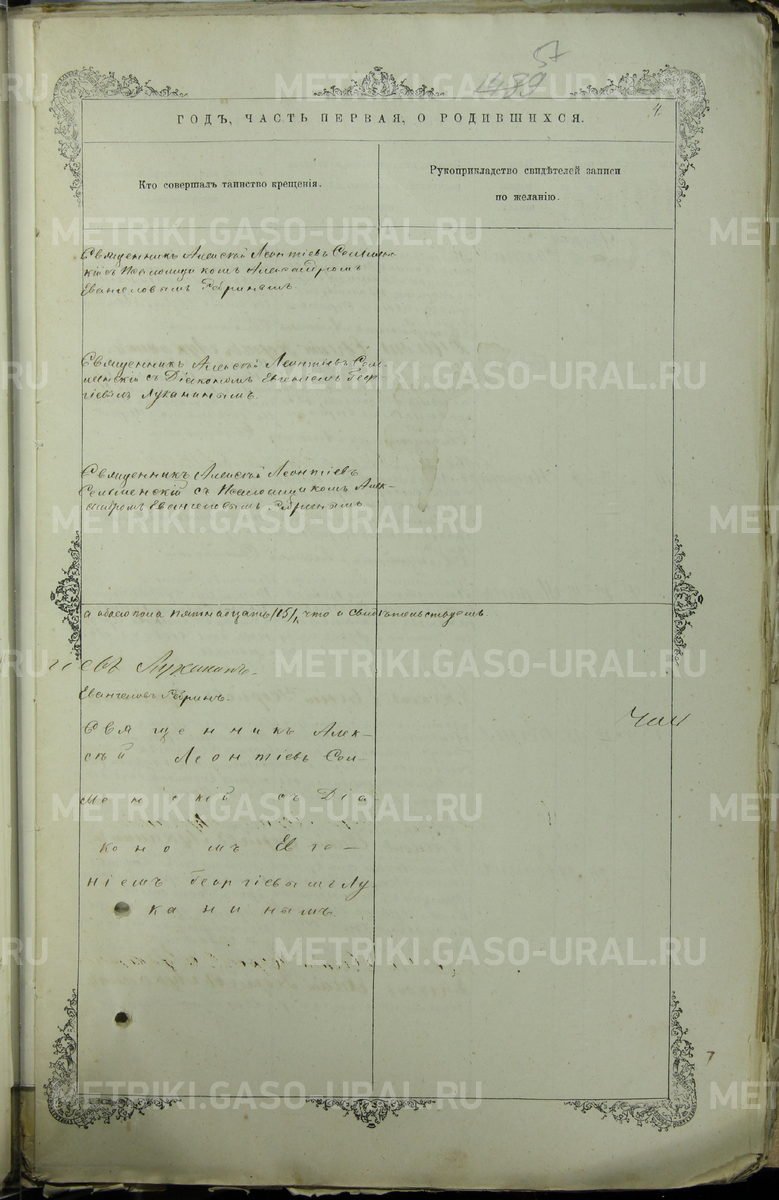 57
489
4.
ГОДЪ, ЧАСТЬ ПЕРВАЯ, О РОДИВШИХСЯ.
Кто совершалъ таинство крещенія.
Рукоприкладство свидѣтелей записи
по желанію.
Священникъ Алексѣй Леонтіевъ
съ Псаломщикомъ Александромъ
Евангеловымъ
Священникъ Алексѣй Леонтіевъ Сол-
менскій съ Діакономъ Евгеніемъ Геор-
гіевымъ Луканинымъ.
Священникъ Алексѣй Леонтіевъ
Солменскій съ Псаломщикомъ Алек-
сандромъ Евангеловымъ
пола пятнадцать /15/, что и свидѣтельствуемъ
гіевъ Луканинъ.
Евангеловъ
Священникъ Алек-
сѣй Леонтіевъ Сол-
менскій съ Діа
кономъ Евге-
ніемъ Георгіевымъ Лу
канинымъ
7
METRIKI.GASO-URAL.RU